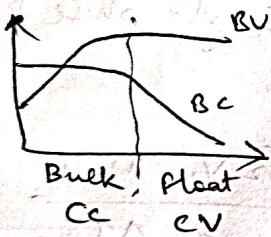 BV
BC
Bulk Float
CC CV